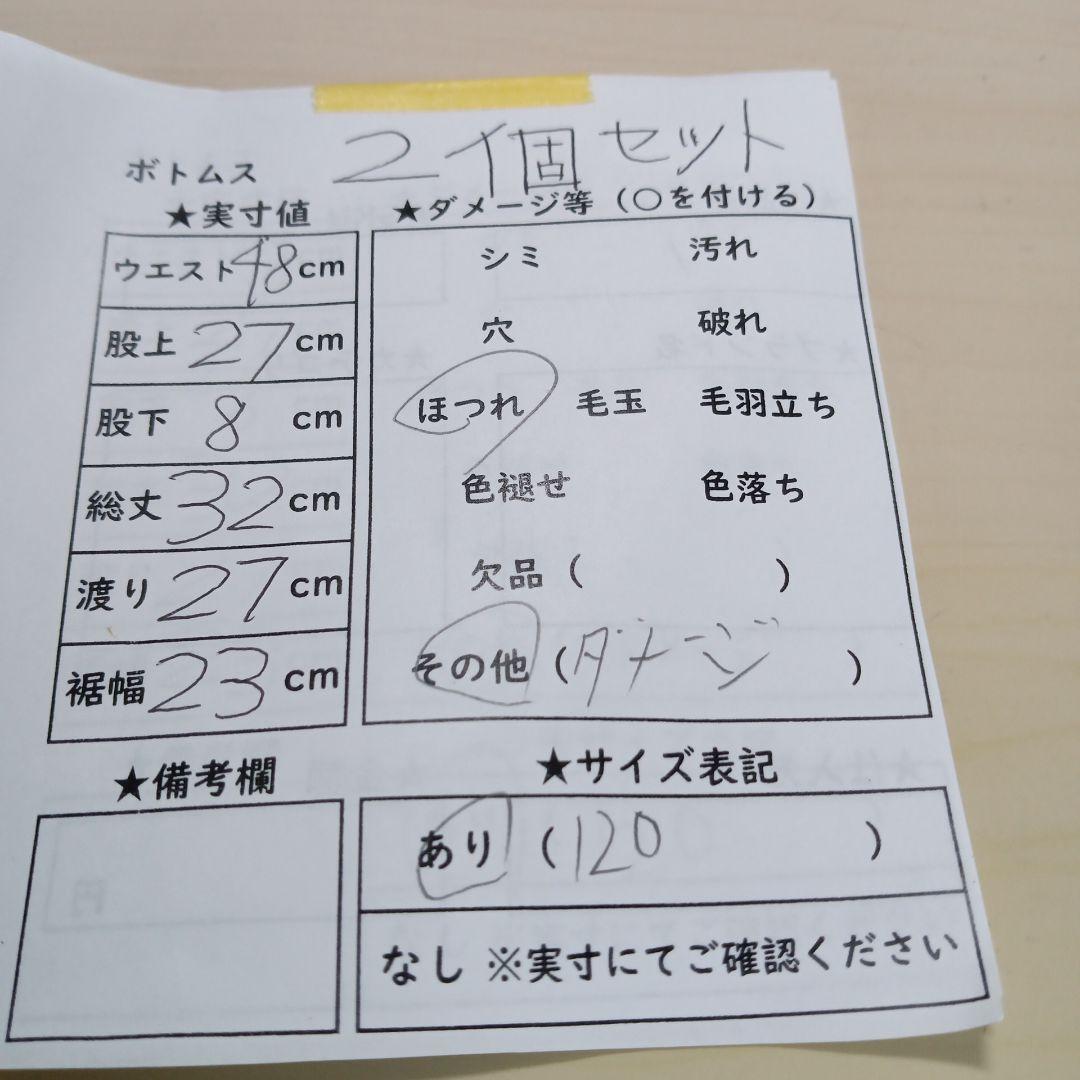 2個セット
ボトムス
★実寸値
ウエスト48cm
股上 27cm
股下 8 cm
総丈 32cm
渡り 27cm
裾幅 23cm
★ダメージ等（〇を付ける）
シミ 汚れ
穴 破れ
ほつれ 毛玉 毛羽立ち
色褪せ 色落ち
欠品（ ）
その他（ダメージ ）
★備考欄
★サイズ表記
あり（120 ）
なし ※実寸にてご確認ください